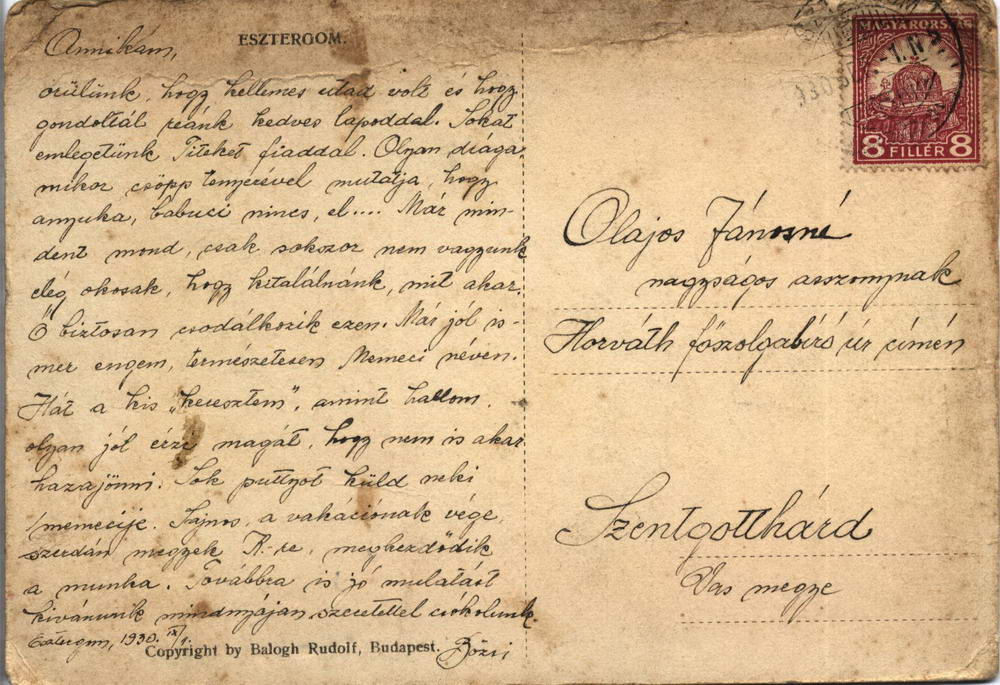 ESZTERGOM.
Annikám,
örülünk, hogy kellemes utad volt és hogy
gondoltál reánk kedves lapoddal. Sokat
emlegetünk Titeket fiaddal. Olyan drága
mikor csöpp tenyerével mutatja, hogy
anyuka, babuci nincs, el.... Már min-
dent mond, csak sokszor nem vagyunk
elég okosak, hogy kitalálnánk, mit akar.
Ő biztosan csodálkozik ezen. Már jól is-
mer engem, természetesen Memeci néven.
Hát a kis „keresztem", amint hallom,
olyan jól érzi magát, hogy nem is akar
hazajönni. Sok puttyot küld neki
memecije. Sajnos, a vakációnak vége,
szerdán megyek R.-re, megkezdődik
a munka. Továbbra is jó mulatást
kívánunk mindnyájan szeretettel csókolunk.
Esztergom, 1930. IX/1.
Bözsi
Copyright by Balogh Rudolf, Budapest.
MAGYARORSZÁG
8 FILLÉR 8
Olajos Jánosné
nagyságos asszonynak
Horváth főszolgabíró úr címén
Szentgotthárd
Vas megye